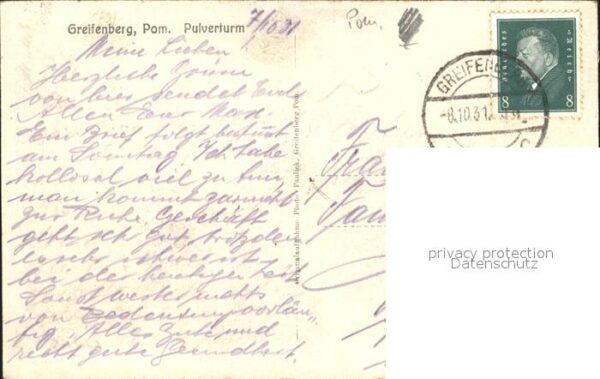 Greifenberg, Pom. Pulverturm
7/10 31
Pom.
Meine Lieben
Herzliche Grüsse
von hier sendet Euch
Allen Euer Max.
Ein Brief folgt bestimmt
am Sonntag. Ich habe
kollosal viel zu tun
man kommt garnicht
zur Ruhe Geschäft
geht sehr gut, trotzdem
es sehr schwer ist
bei der heutigen Zeit
Sonst weiter nichts
von Bedeutung vorläu„
fig. Alles Gute und
recht gute Gesundheit.
Photo Paulick, Greifenberg Pom.
Deutsches Reich
8 8
GREIFENBE
-8.10.31.
Fra
privacy protection
Datenschutz